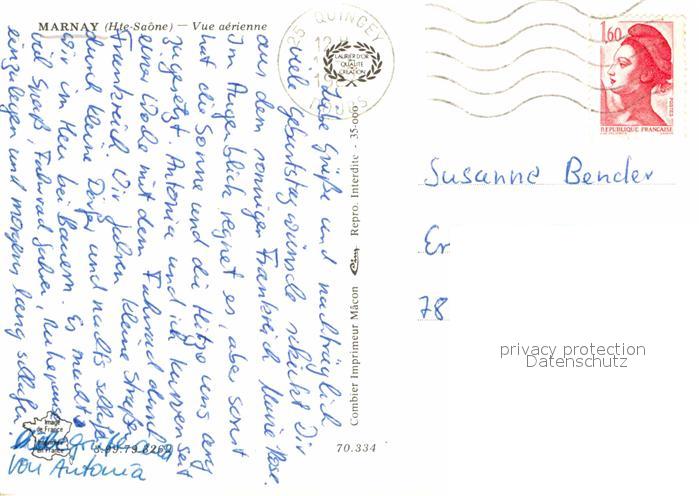 MARNAY (Hte-Saône) — Vue aérienne
Liebe Grüße und nachträglich
viele Geburtstagswünsche schickt Dir
aus dem sonnigen Frankreich Deine Rose.
Im Augenblick regnet es, aber sonst
hat die Sonne und die Hitze uns arg
zugesetzt. Antonia und ich kurven seit
einer Woche mit dem Fahrrad durch
Frankreich. Wir fahren kleine Straßen
durch kleine Dörfer und nachts schlafen
wir im Heu bei Bauern. Es macht
viel Spaß, Fahrrad fahren, Ruhepausen
einzulegen und morgens lang schlafen.
Liebe Grüße auch
von Antonia
Image de France
70.334
Combier Imprimeur Mâcon Cim Repro. Interdite - 35-000
25 QUINGEY
DOUBS
LAURIER D'OR
QUALITÉ
CRÉATION
1,60
POSTES
REPUBLIQUE FRANÇAISE
Susanne Bender
Er
78
privacy protection
Datenschutz